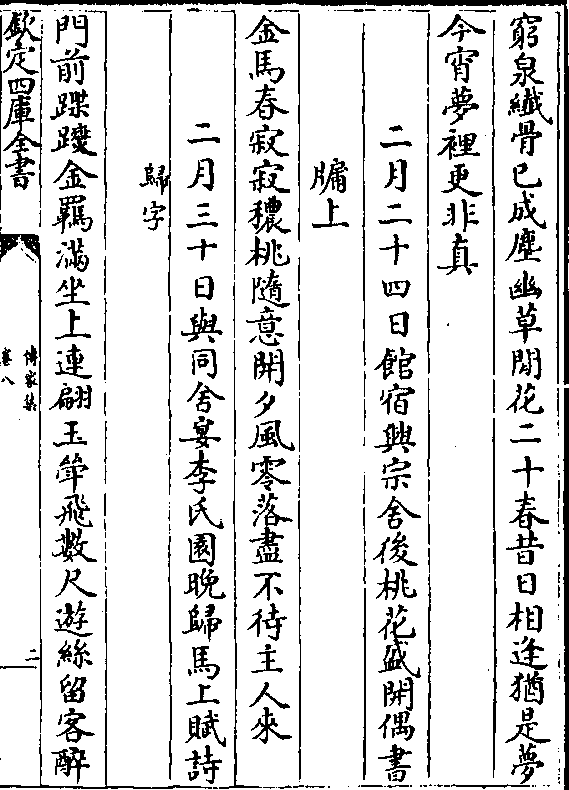 窮泉纎骨已成塵幽草閒花二十春昔日相逢猶是夢
今宵夢裡更非真
二月二十四日館宿興宗舍後桃花盛開偶書
牖上
金馬春寂寂穠桃隨意開夕風零落盡不待主人來
二月三十日與同舍宴李氏園晚歸馬上賦詩
歸字
門前蹀躞金羈滿坐上連翩玉斝飛數尺遊絲留客醉
欽定四庫全書
傳家集
卷八
二